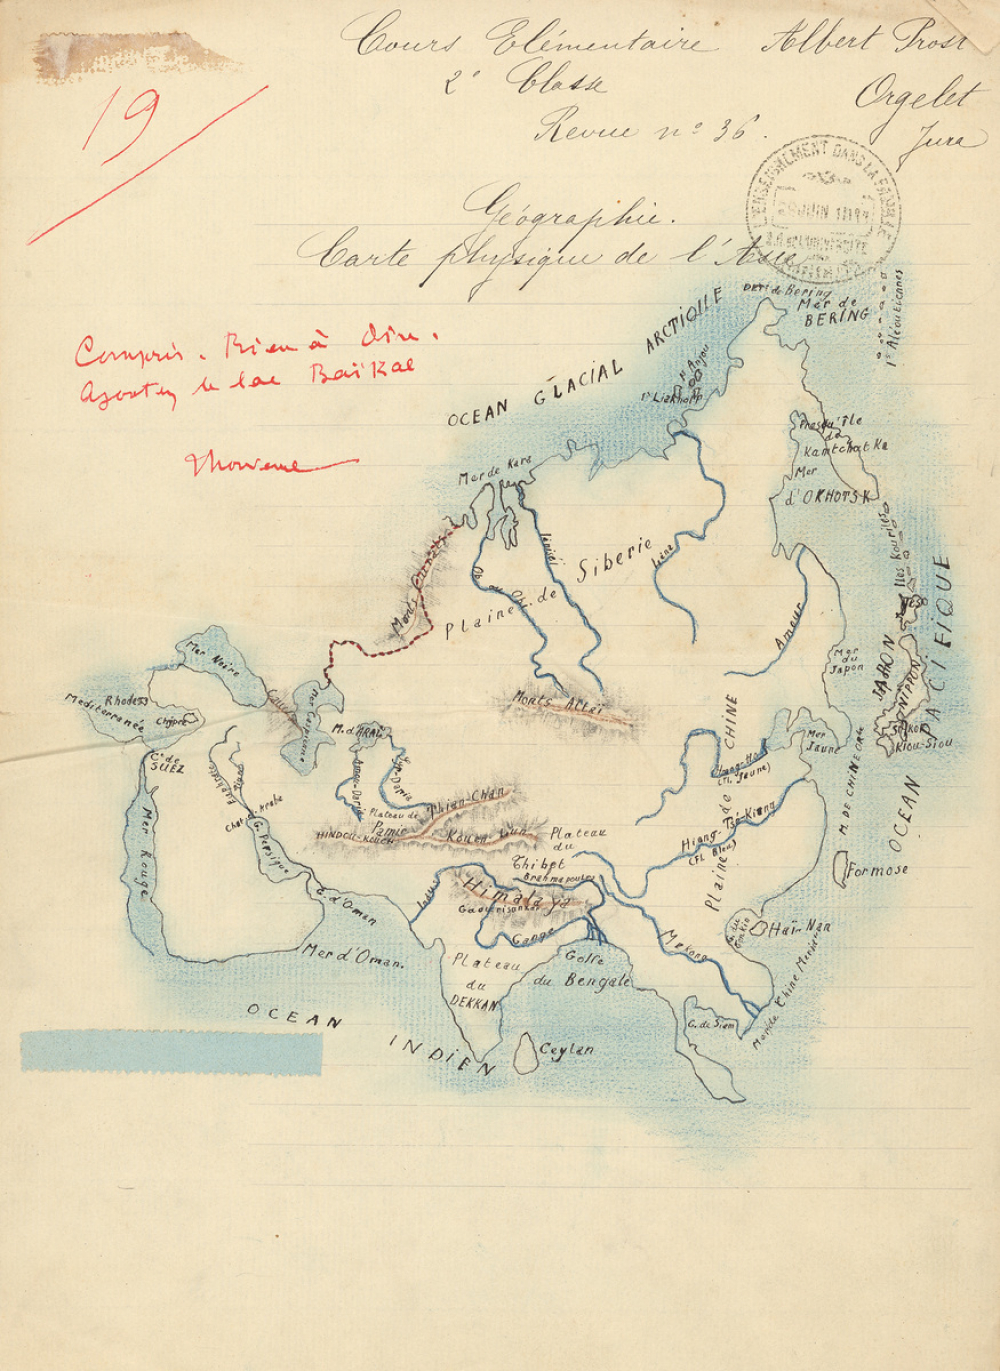 Cours Elémentaire Albert Prost
2e Classe Orgelet
Revue no 36. Jura
19
L'ENSEIGNEMENT DANS LA FAMILLE
JUIN
Géographie.
Carte physique de l'Asie
Compris. Rien à dire.
Ajoutez le lac Baïkal
OCEAN GLACIAL ARCTIQUE
Dét. de Bering
Mer de
BERING
Is Aléoutiennes
Is Anjou
Is Liakhoff
Mer de Kara
Presqu'île
de
Kamtchatka
Mer
d'OKHOTSK
Iles Kouriles
Monts Ourals
Ob ou Obi
Iénisséi
Plaine de Siberie
Léna
Amour
OCEAN PACIFIQUE
JAPON
NIPPON
Kiou-Siou
Mer
du
Japon
Mer Noire
Mer Caspienne
Rhodes
Méditerranée
Chypre
C. de
SUEZ
M. d'ARAL
Amou-Daria
Syr-Daria
Monts Altaï
Plaine de CHINE
Hoang-Ho
(Fl. Jaune)
Mer
Jaune
M. DE CHINE ORle
Plateau de
Pamir
Thian-Chan
HINDOU-KOUCH
Kouen-Lun
Plateau
du
Thibet
Brahmapoutre
Himalaya
Gaourisankar
Indus
Gange
Hiang-Tsé-Kiang
(Fl. Bleu)
Formose
Euphrate
Chat-el-Arabe
G. Persique
Mer Rouge
G. d'Oman
Mer d'Oman.
Plateau
du
DEKKAN
Golfe
du Bengale
Mékong
G. du
Tonkin
Haï-Nan
Mer de Chine Méridle
G. de Siam
Ceylan
OCEAN INDIEN